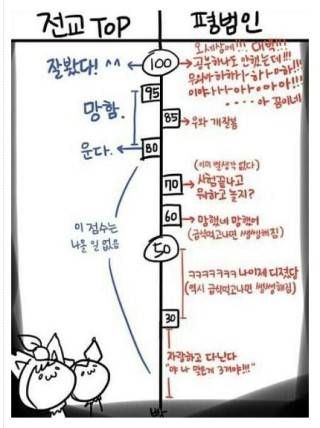 전교 TOP
평범인
잘봤다! ^^
100
오 세상에!!! 대박!!!
공부하나도 안했는데!!!
우와하하하하-하-하하!!!
이야ㅏㅏㅏ아ㅏ아아!!!
.... 아 꿈이네
95
망함.
85
우와 개잘봄
80
운다.
(이미 별생각 없다)
70
시험끝나고
뭐하고 놀지?
60
망했네 망했어
(급식먹고나면 쌩쌩해짐)
이 점수는
나올 일 없음
50
ㅋㅋㅋㅋㅋㅋㅋ 나이제 디졌당
(역시 급식먹고나면 쌩쌩해짐)
30
자랑하고 다닌다
"야 나 맞은게 3개야!!!"
빵